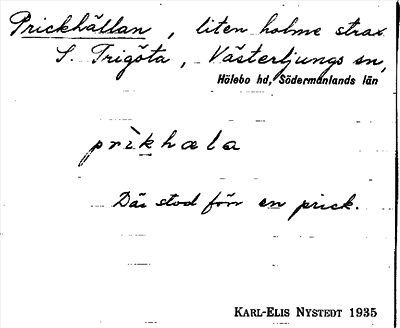 Prickhällan, liten holme strax
S. Trigöta, Västerljungs sn,
Hölebo hd, Södermanlands län
prìkhæla
Där stod förr en prick.
KARL-ELIS NYSTEDT 1935